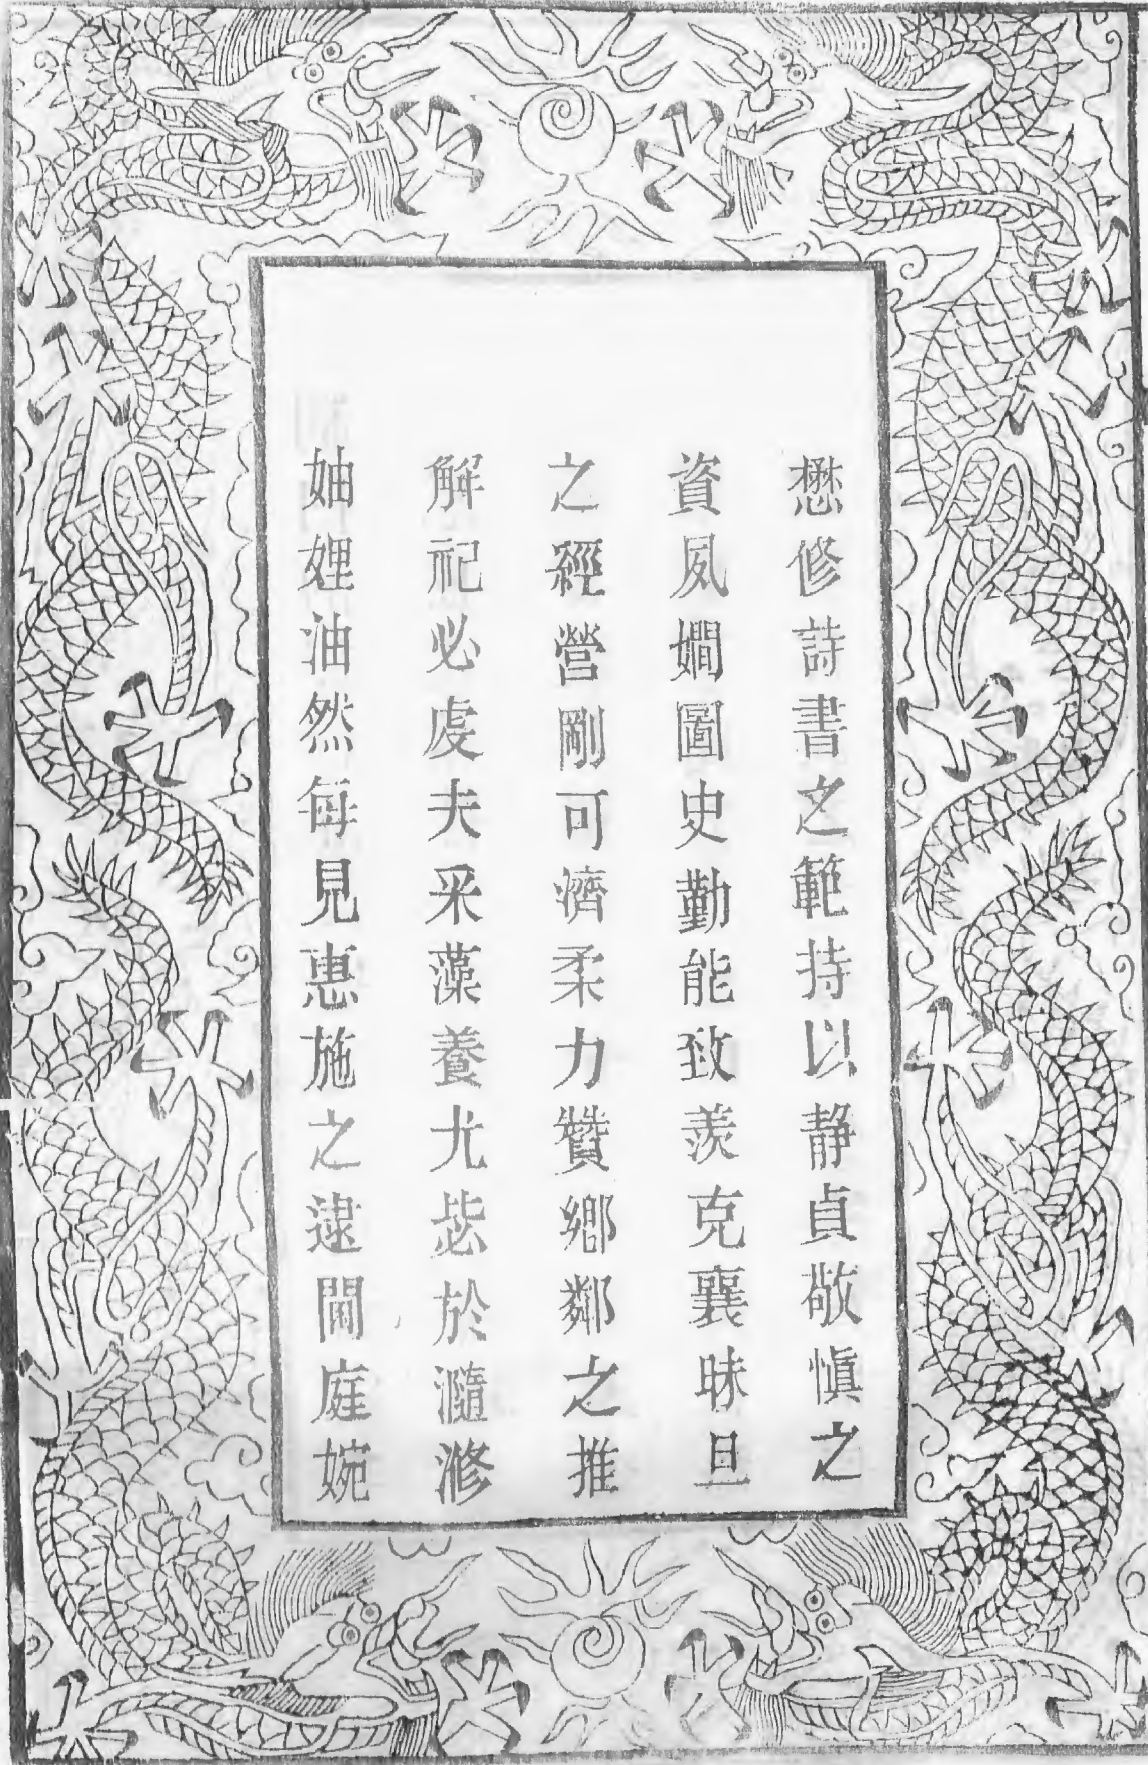 懋修詩書之範持以静貞敬慎之
資夙嫺圖史勤能致羨克襄昧旦
之經營剛可濟柔力贊鄉鄰之推
解祀必虔夫采藻養尤毖於瀡滫
妯娌油然每見惠施之逮閫庭婉